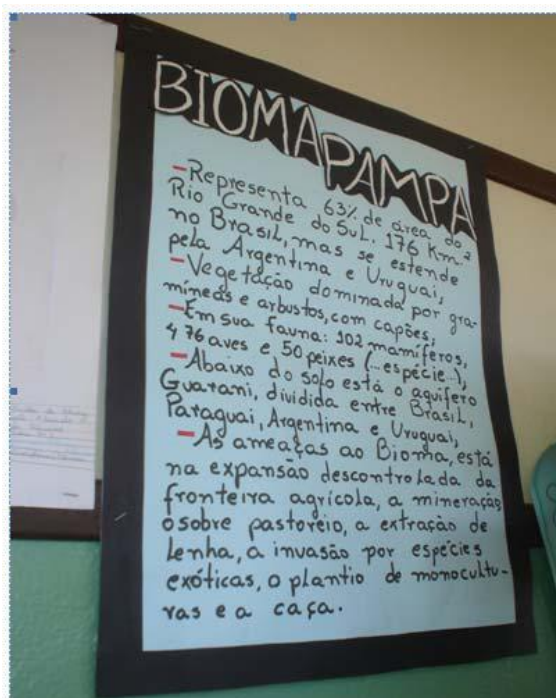 BIOMAPAMPA
-Representa 63% de área do
Rio Grande do Sul. 176 Km.²
no Brasil, mas se estende
pela Argentina e Uruguai,
-Vegetação dominada por gra-
míneas e arbustos, com capões,
-Em sua fauna: 102 mamíferos,
476 aves e 50 peixes (...espécie),
-Abaixo do solo está o aquífero
Guarani, dividida entre Brasil,
Paraguai, Argentina e Uruguai,
-As ameaças ao Bioma, está
na expansão descontrolada da
fronteira agrícola, a mineração,
o sobre pastoreio, a extração de
lenha, a invasão por espécies
exóticas, o plantio de monocultu-
ras e a caça.